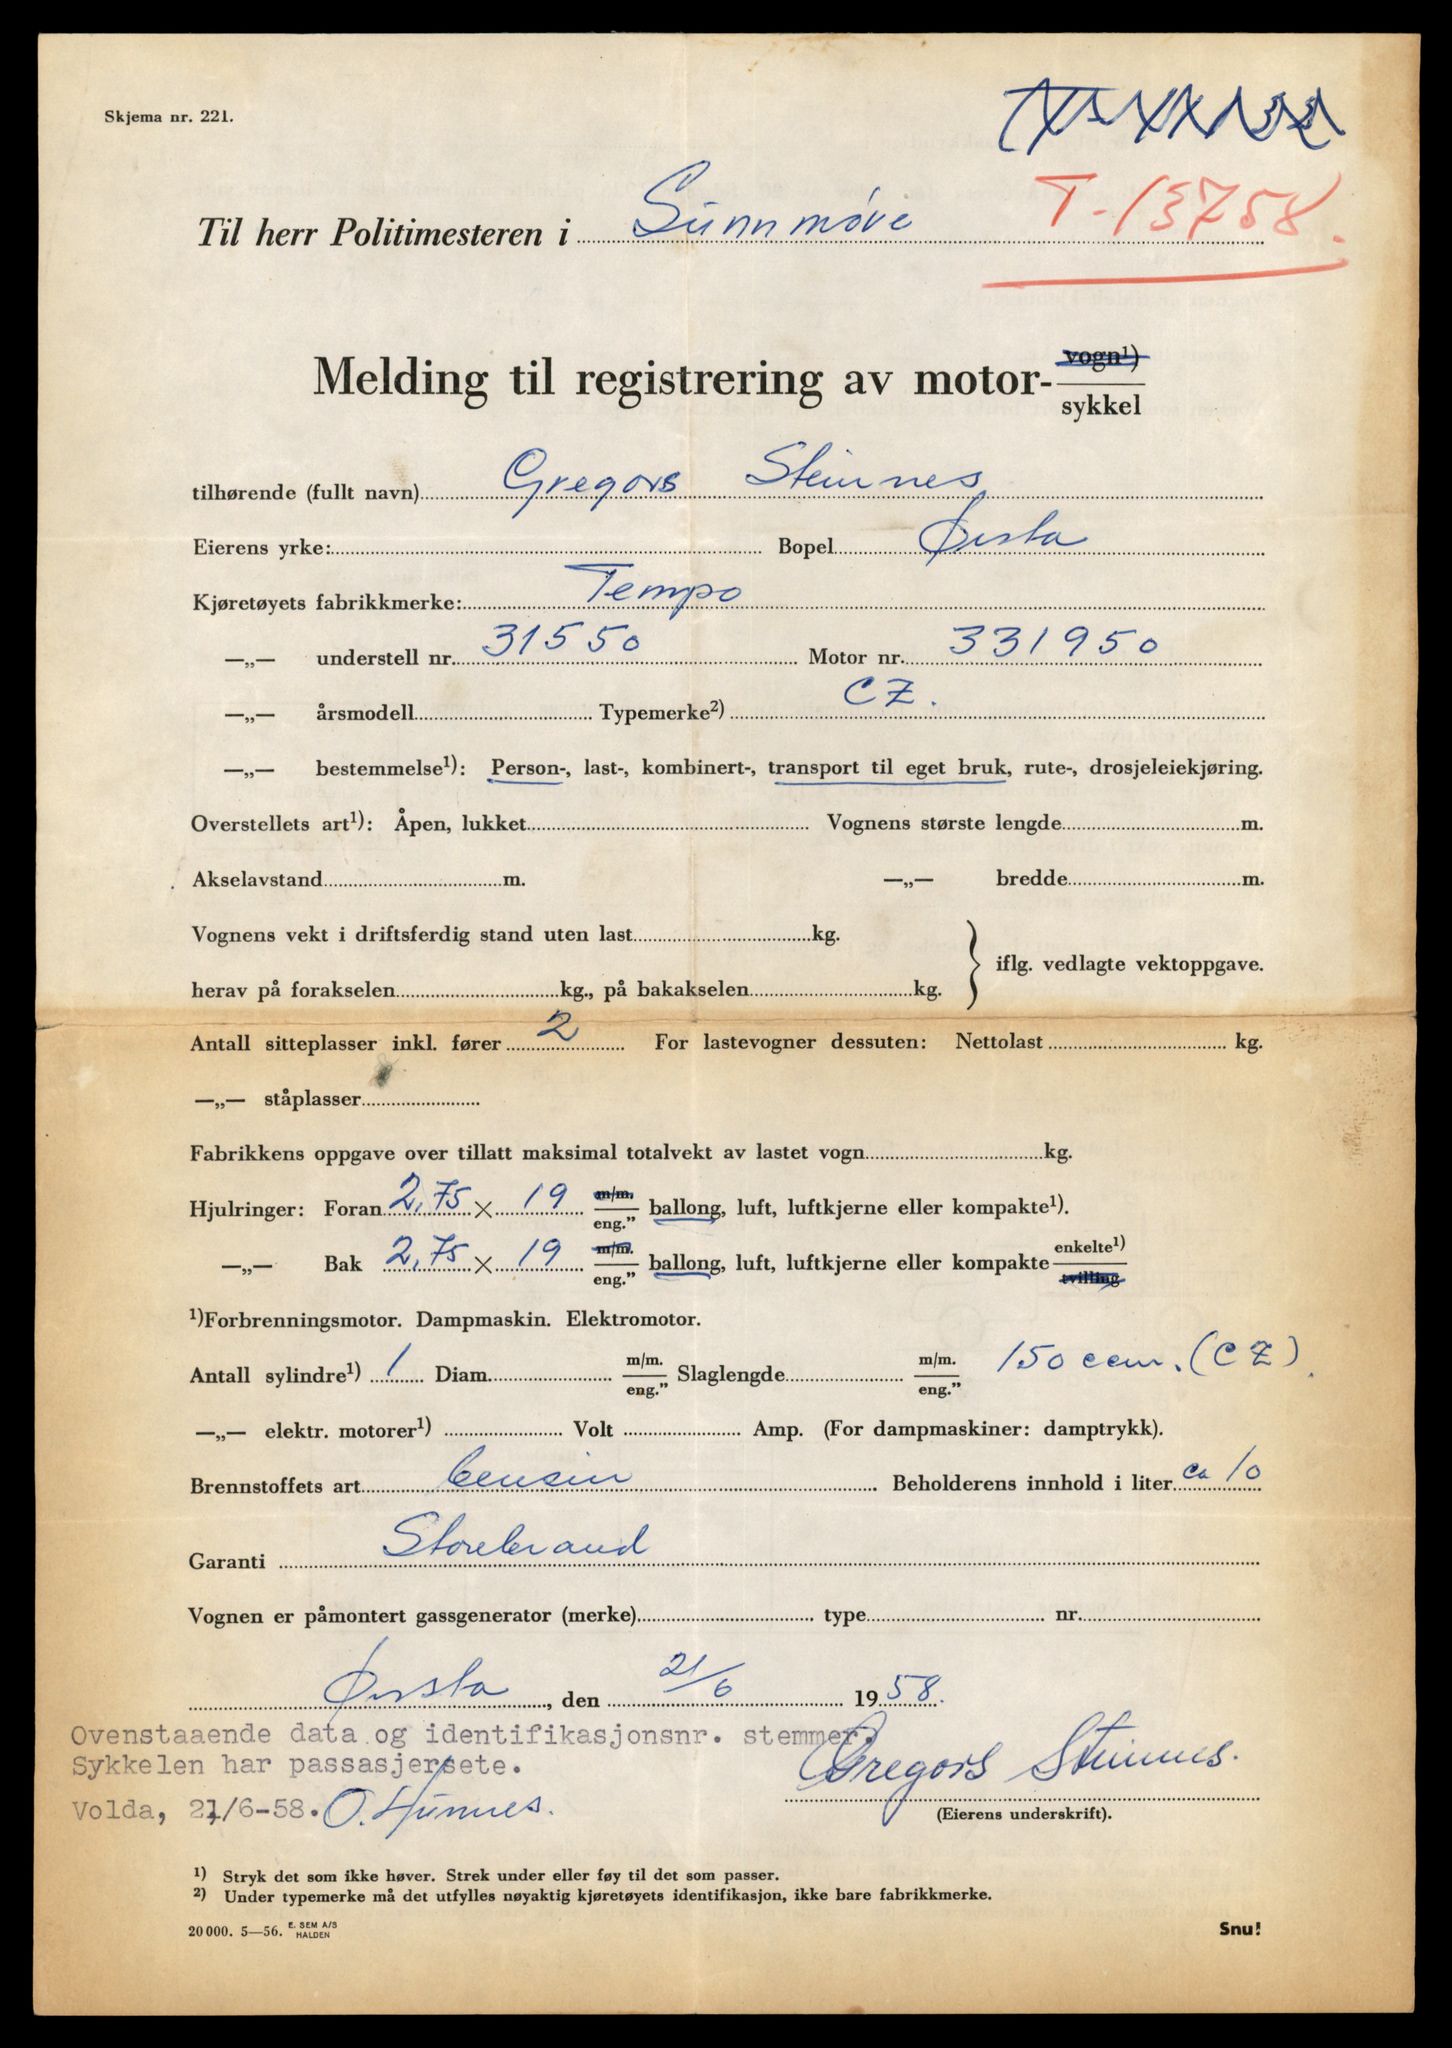 Skjema nr. 221.
Til herr Politimesteren i Sunnmøre T-13758.
Melding til registrering av motor- vogn¹)
sykkel
tilhørende (fullt navn) Gregors Steinnes
Eierens yrke: Bopel Ørsta
Kjøretøyets fabrikkmerke: Tempo
—„— understell nr. 31550 Motor nr. 331950
—„— årsmodell Typemerke²) CZ.
—„— bestemmelse¹): Person-, last-, kombinert-, transport til eget bruk, rute-, drosjeleiekjøring.
Overstellets art¹): Åpen, lukket Vognens største lengde m.
Akselavstand m. —„— bredde m.
Vognens vekt i driftsferdig stand uten last kg.
iflg. vedlagte vektoppgave.
herav på forakselen kg., på bakakselen kg.
Antall sitteplasser inkl. fører 2 For lastevogner dessuten: Nettolast kg.
—„— ståplasser
Fabrikkens oppgave over tillatt maksimal totalvekt av lastet vogn kg.
Hjulringer: Foran 2,75 × 19 m/m. eng.” ballong, luft, luftkjerne eller kompakte¹).
—„— Bak 2,75 × 19 m/m. eng.” ballong, luft, luftkjerne eller kompakte enkelte¹) tvilling
¹)Forbrenningsmotor. Dampmaskin. Elektromotor.
Antall sylindre¹) 1 Diam. m/m. eng.” Slaglengde m/m. eng.” 150 ccm. (CZ).
—„— elektr. motorer¹) Volt Amp. (For dampmaskiner: damptrykk).
Brennstoffets art bensin Beholderens innhold i liter ca 10
Garanti Storebrand
Vognen er påmontert gassgenerator (merke) type nr.
Ørsta, den 21/6 1958.
Ovenstaaende data og identifikasjonsnr. stemmer.
Sykkelen har passasjersete. Gregors Steinnes.
Volda, 21/6-58. O. Humnes.
(Eierens underskrift).
¹) Stryk det som ikke høver. Strek under eller føy til det som passer.
²) Under typemerke må det utfylles nøyaktig kjøretøyets identifikasjon, ikke bare fabrikkmerke.
20 000. 5—56. E. SEM A/S HALDEN Snu!